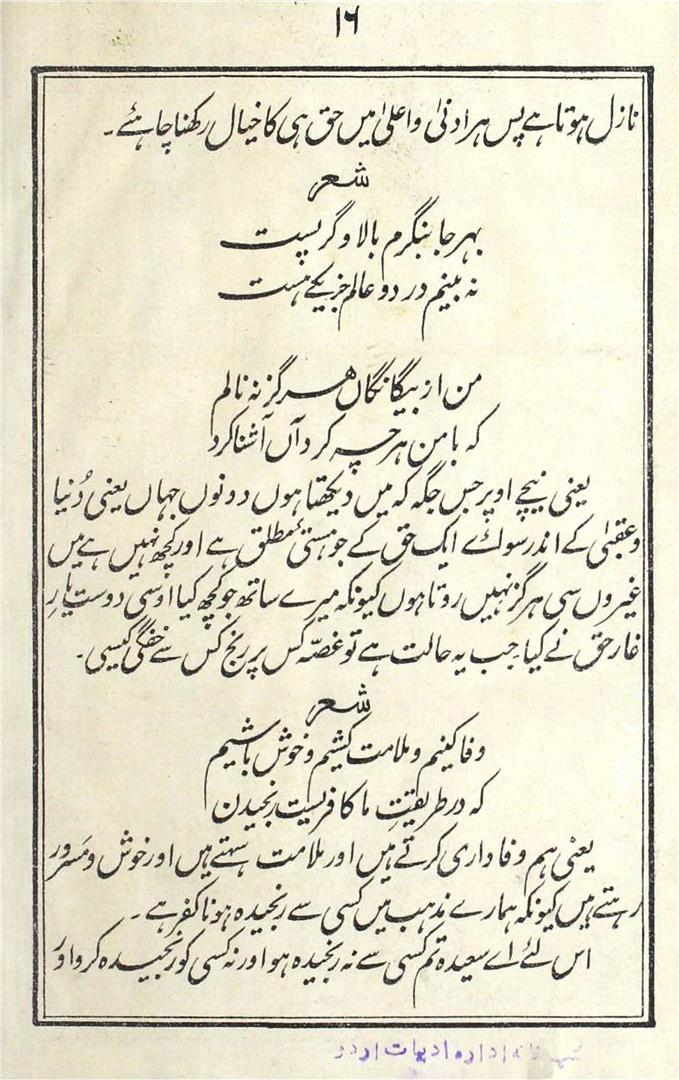 ۱۶
نازل ہوتا ہے پس ہر ادنیٰ و اعلیٰ میں حق ہی کا خیال رکھنا چاہئے۔
شعر
بہر جا بنگرم بالا و گر پست
نہ بینم در دو عالم جز یکے ہست
من از بیگانگاں ہرگز نہ نالم
کہ با من ہر چہ کرد آں آشنا کرد
یعنی نیچے اوپر جس جگہ کہ میں دیکھتا ہوں دونوں جہاں یعنی دُنیا
و عقبیٰ کے اندر سوائے ایک حق کے جو ہستیٔ مطلق ہے اور کچھ نہیں ہے میں
غیروں سی ہرگز نہیں روتا ہوں کیونکہ میرے ساتھ جو کچھ کیا اوسی دوست یارِ
غار حق نے کیا جب یہ حالت ہے تو غصّہ کس پر رنج کس سے خفگی کیسی۔
شعر
وفا کنیم و ملامت کشیم و خوش باشیم
کہ در طریقتِ ما کافریست رنجیدن
یعنی ہم وفاداری کرتے ہیں اور ملامت سہتے ہیں اور خوش و مسرور
رہتے ہیں کیونکہ ہمارے مذہب میں کسی سے رنجیدہ ہونا کفر ہے۔
اس لئے اے سعیدہ تم کسی سے نہ رنجیدہ ہو اور نہ کسی کو رنجیدہ کرو اور
ادارہ ادبیات اردو